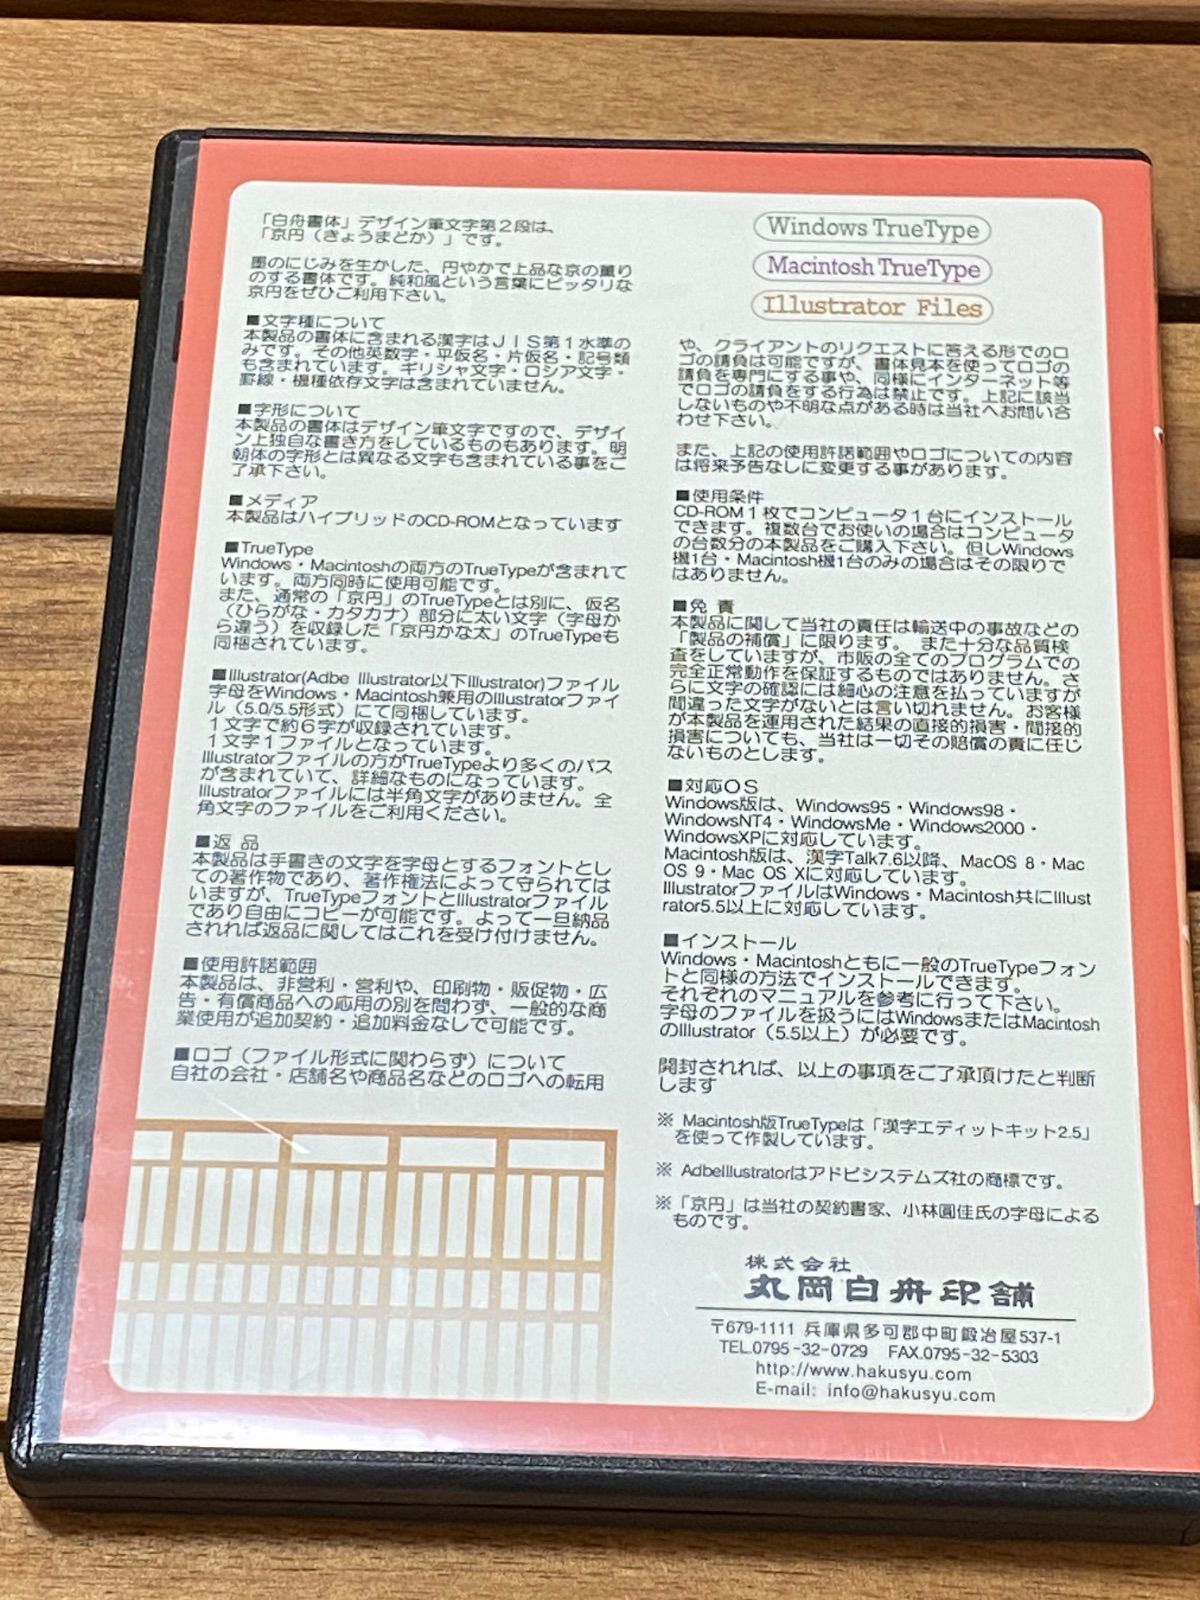 「白舟書体」デザイン筆文字第２段は、
「京円（きょうまどか）」です。
墨のにじみを生かした、円やかで上品な京の薫り
のする書体です。純和風という言葉にピッタリな
京円をぜひご利用下さい。
■文字種について
本製品の書体に含まれる漢字はＪＩＳ第１水準の
みです。その他英数字・平仮名・片仮名・記号類
も含まれています。ギリシャ文字・ロシア文字・
罫線・機種依存文字は含まれていません。
■字形について
本製品の書体はデザイン筆文字ですので、デザイ
ン上独自な書き方をしているものもあります。明
朝体の字形とは異なる文字も含まれている事をご
了承下さい。
■メディア
本製品はハイブリッドのCD-ROMとなっています
■TrueType
Windows・Macintoshの両方のTrueTypeが含まれて
います。両方同時に使用可能です。
また、通常の「京円」のTrueTypeとは別に、仮名
（ひらがな・カタカナ）部分に太い文字（字母か
ら違う）を収録した「京円かな太」のTrueTypeも
同梱されています。
■Illustrator(Adbe Illustrator以下Illustrator)ファイル
字母をWindows・Macintosh兼用のIllustratorファイ
ル（5.0/5.5形式）にて同梱しています。
１文字で約６字が収録されています。
１文字１ファイルとなっています。
Illustratorファイルの方がTrueTypeより多くのパス
が含まれていて、詳細なものになっています。
Illustratorファイルには半角文字がありません。全
角文字のファイルをご利用ください。
■返 品
本製品は手書きの文字を字母とするフォントとし
ての著作物であり、著作権法によって守られては
いますが、TrueTypeフォントとIllustratorファイル
であり自由にコピーが可能です。よって一旦納品
されれば返品に関してはこれを受け付けません。
■使用許諾範囲
本製品は、非営利・営利や、印刷物・販促物・広
告・有償商品への応用の別を問わず、一般的な商
業使用が追加契約・追加料金なしで可能です。
■ロゴ（ファイル形式に関わらず）について
自社の会社・店舗名や商品名などのロゴへの転用
Windows TrueType
Macintosh TrueType
Illustrator Files
や、クライアントのリクエストに答える形でのロ
ゴの請負は可能ですが、書体見本を使ってロゴの
請負を専門にする事や、同様にインターネット等
でロゴの請負をする行為は禁止です。上記に該当
しないものや不明な点がある時は当社へお問い合
わせ下さい。
また、上記の使用許諾範囲やロゴについての内容
は将来予告なしに変更する事があります。
■使用条件
CD-ROM１枚でコンピュータ１台にインストール
できます。複数台でお使いの場合はコンピュータ
の台数分の本製品をご購入下さい。但しWindows
機1台・Macintosh機1台のみの場合はその限りで
はありません。
■免 責
本製品に関して当社の責任は輸送中の事故などの
「製品の補償」に限ります。また十分な品質検
査をしていますが、市販の全てのプログラムでの
完全正常動作を保証するものではありません。さ
らに文字の確認には細心の注意を払っていますが
間違った文字がないとは言い切れません。お客様
が本製品を運用された結果の直接的損害・間接的
損害についても、当社は一切その賠償の責に任じ
ないものとします。
■対応ＯＳ
Windows版は、Windows95・Windows98・
WindowsNT4・WindowsMe・Windows2000・
WindowsXPに対応しています。
Macintosh版は、漢字Talk7.6以降、MacOS 8・Mac
OS 9・Mac OS Xに対応しています。
IllustratorファイルはWindows・Macintosh共にIllust
rator5.5以上に対応しています。
■インストール
Windows・Macintoshともに一般のTrueTypeフォン
トと同様の方法でインストールできます。
それぞれのマニュアルを参考に行って下さい。
字母のファイルを扱うにはWindowsまたはMacintosh
のIllustrator（5.5以上）が必要です。
開封されれば、以上の事項をご了承頂けたと判断
します
※ Macintosh版TrueTypeは「漢字エディットキット2.5」
を使って作製しています。
※ AdbeIllustratorはアドビシステムズ社の商標です。
※「京円」は当社の契約書家、小林圓佳氏の字母による
ものです。
株式会社
丸岡白舟印舗
〒679-1111 兵庫県多可郡中町鍛冶屋537-1
TEL.0795-32-0729 FAX.0795-32-5303
http://www.hakusyu.com
E-mail: info@hakusyu.com